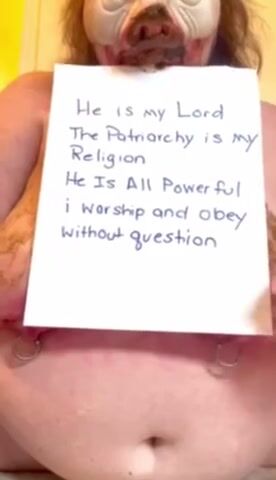 He is my Lord
The Patriarchy is my
Religion
He Is All Powerful
i worship and obey
without question